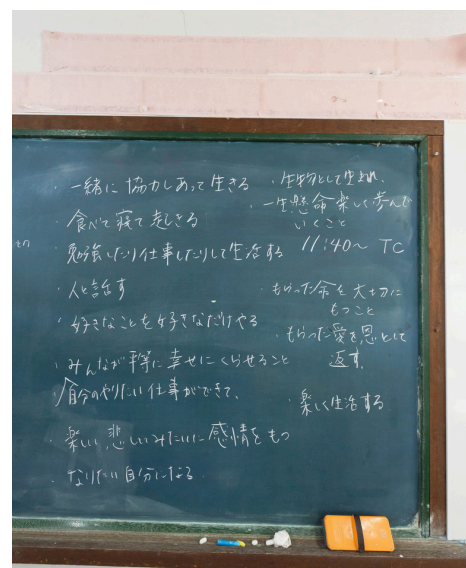 ・一緒に協力しあって生きる
・食べて寝て起きる
・勉強したり仕事したりして生活する
・人と話す
・好きなことを好きなだけやる
・みんなが平等に幸せにくらせること
・自分のやりたい仕事ができて、
・楽しい、悲しいみたいに感情をもつ
・なりたい自分になる
・生物として生まれ、
一生懸命楽しく歩んで
いくこと
11:40〜 TC
・もらった命を大切に
もつこと
・もらった愛を恩として
返す。
・楽しく生活する